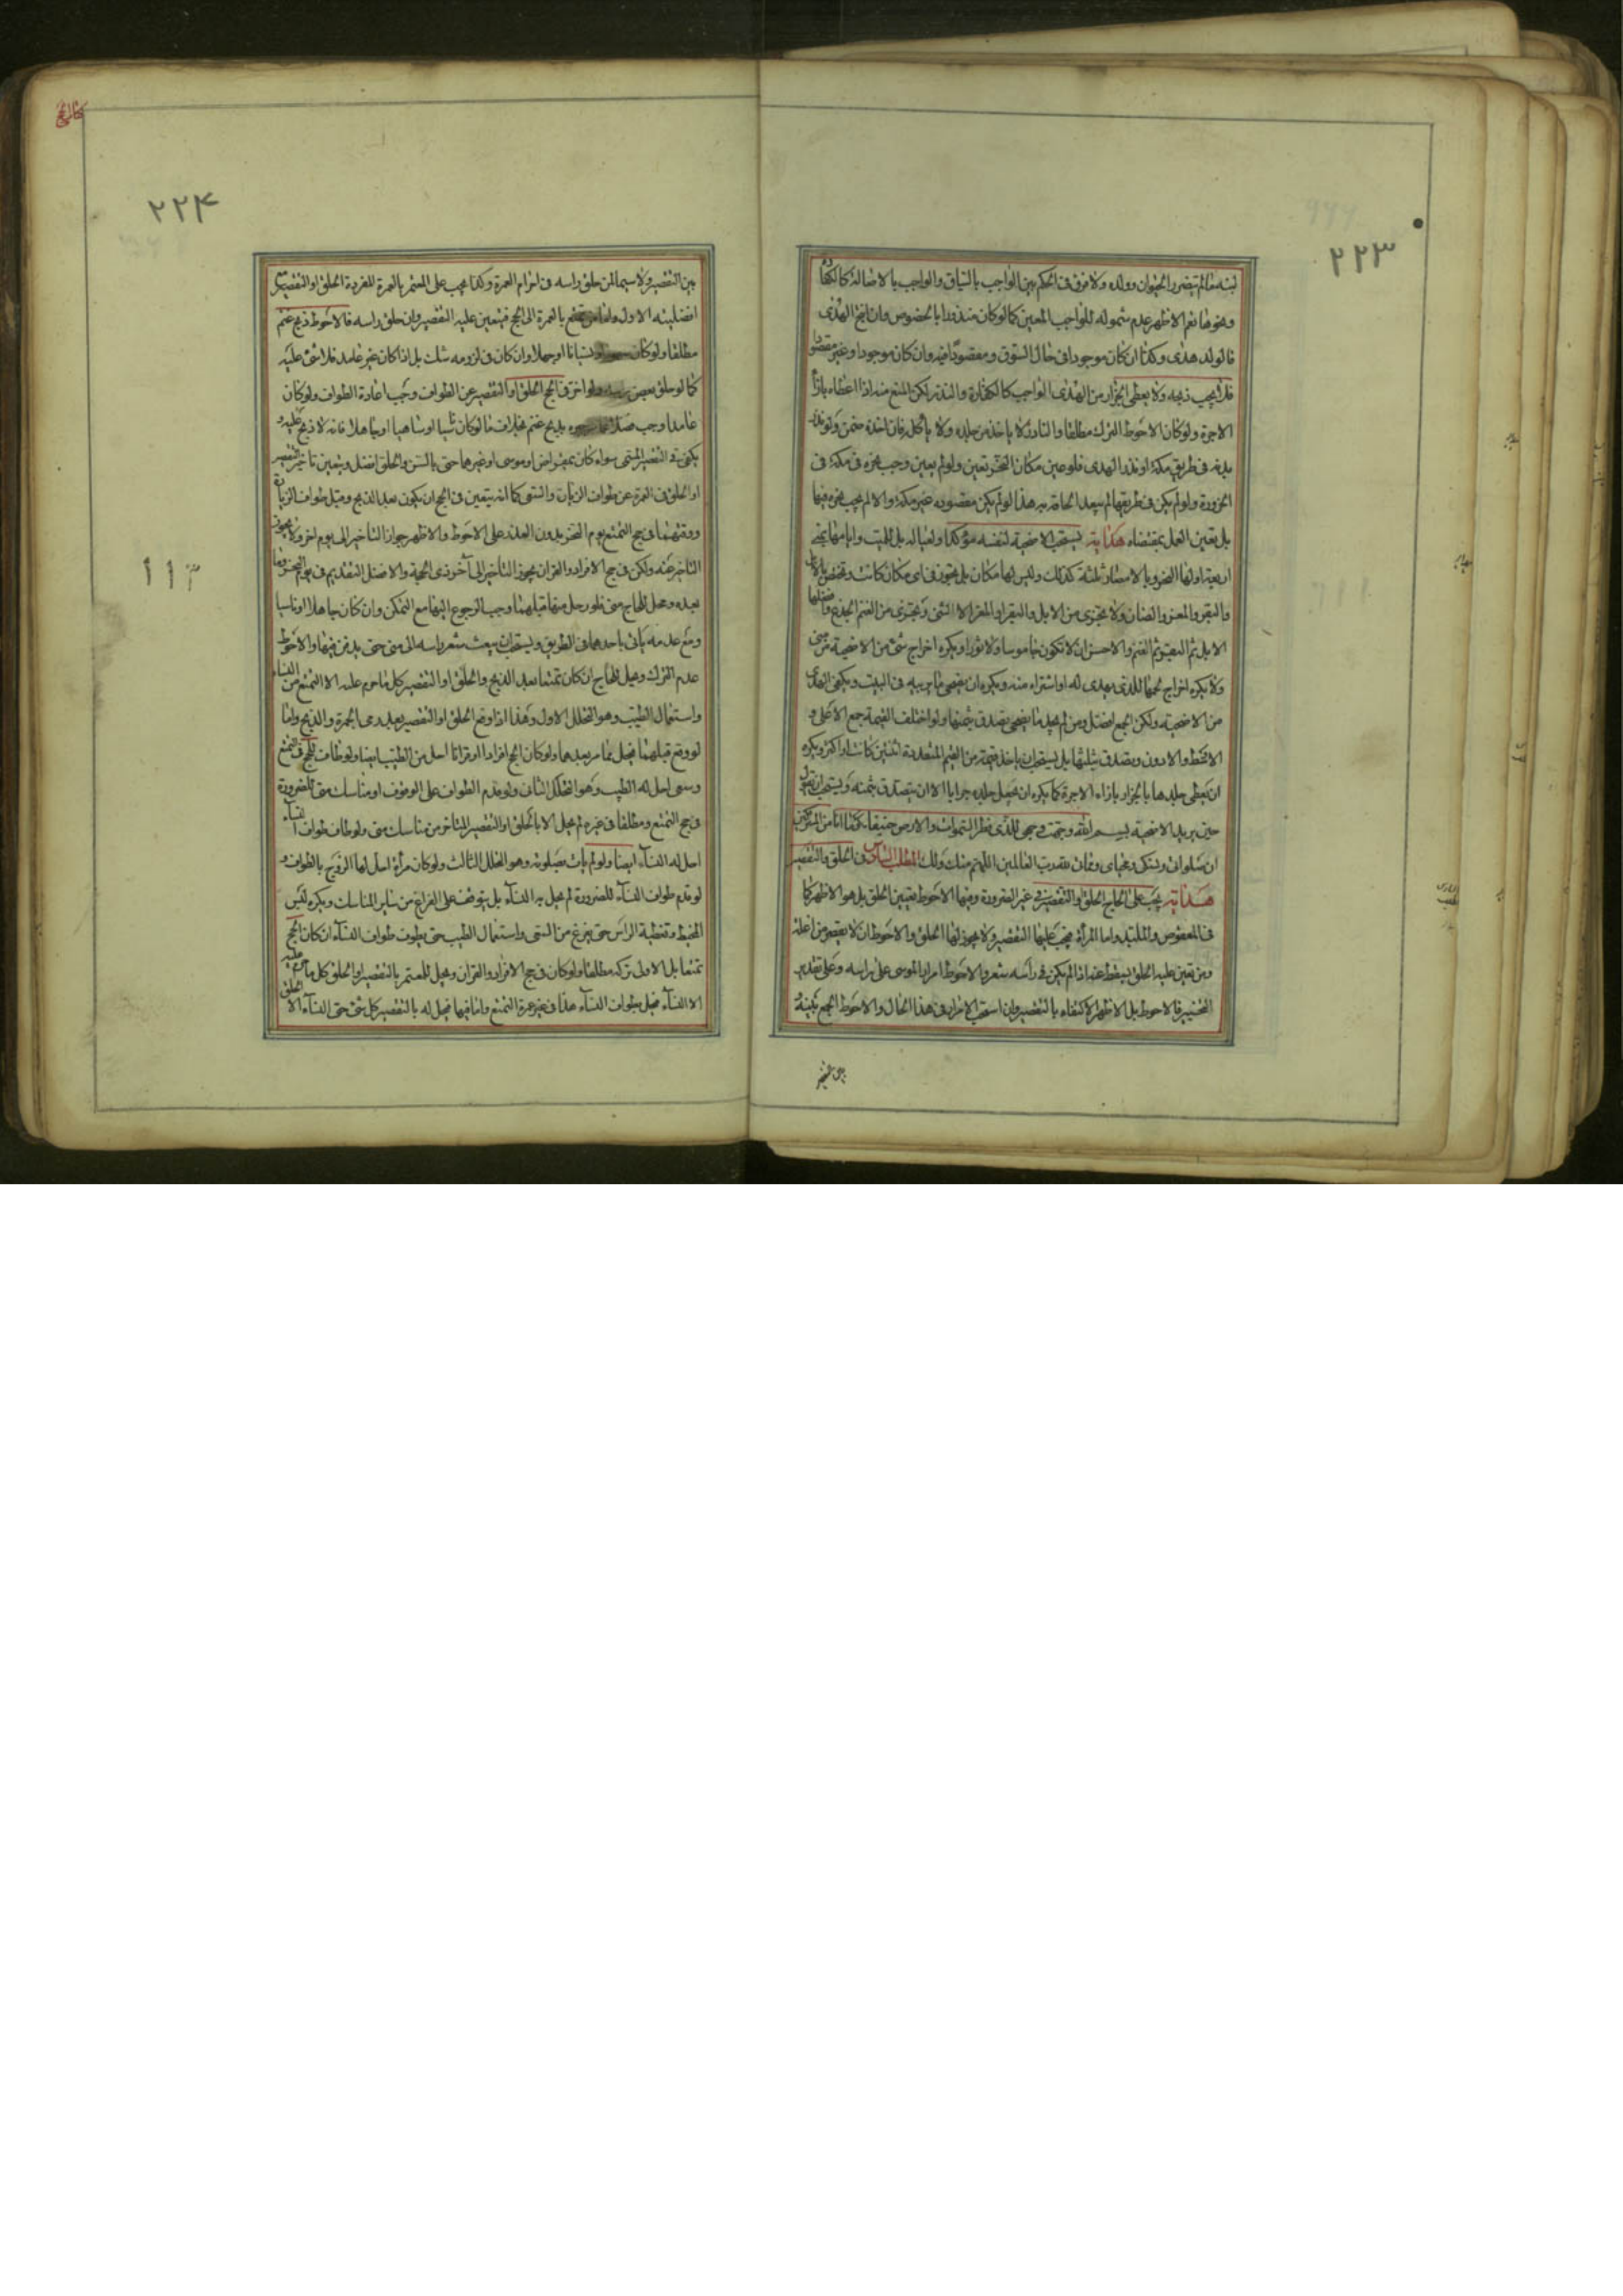 ٢٢٣
لبنه ما لم يتضرر الحيوان وولده ولا فرق فى الحكم بين الواجب بالسياق والواجب بالاصالة كالكفارة
ونحوها نعم الاظهر عدم شموله للواجب المعين كما لو كان منذورا بالخصوص وان نتج الهدى
فالولد هدى وكذا ان كان موجودا فى حال السوق ومقصودا فيه وان كان موجودا وغير مقصود
فلا يجب ذبحه ولا يعطى الجزار من الهدى الواجب كالكفارة والنذر لكن المنع منه اذا اعطاه بازاء
الاجرة ولو كان الاحوط الترك مطلقا والنادر لا ياخذ من جلده ولا ياكل فان اخذه ضمن ولو نذر
بدنة فى طريق مكة او نذر الهدى فلو عين مكان النحر تعين ولو لم يعين وجب نحره فى مكة فى
الحزورة ولو لم يكن فى طريقها لم يبعد الحاقه به هذا لو لم يكن مقصوده غير مكة والا لم يجب نحره فيها
بل تعين العمل بمقتضاه هداية يستحب الاضحية لنفسه مؤكدا ولعياله بل للميت وايامها بمنى
اربعة اولها النحر وبالامصار ثلثة كذلك وليس لها مكان بل يجوز فى اى مكان كانت وتختص بالابل
والبقر والمعز والضان ولا يجزى من الابل والبقر او المعز الا الثنى ويجزى من الغنم الجذع وافضلها
الابل ثم البقر ثم الغنم والاحسن ان لا تكون جاموسا ولا ثورا ويكره اخراج شئ من الاضحية من منى
ولا يكره اخراج لحمها للذى يهدى له او اشتراه منه ويكره ان يضحى ما يربيه فى البيت ويكفى الهدى
من الاضحية ولكن الجمع افضل ومن لم يجد ما يضحى تصدق بثمنها ولو اختلف القيمة جمع الاعلى و
الاوسط والادون وتصدق بثلثها بل يستحب ان ياخذ قيمة من القيم المتعددة اثنتين كانت او اكثر ويكره
ان يعطى جلدها بالجزار بازاء الاجرة كما يكره ان يجعل جلده جرابا الا ان يتصدق بثمنه ويستحب ان يقول
حين يريد الاضحية بسم الله وجهت وجهى للذى فطر السموات والارض حنيفا وما انا من المشركين
ان صلواتى ونسكى ومحياى ومماتى لله رب العالمين اللهم منك ولك المطلب السادس فى الحلق والتقصير
هداية يجب على الحاج الحلق او التقصير فى غير الصرورة وفيها الاحوط تعيين الحلق بل هو الاظهر كما
فى المعقوص والملبد واما المرأة فيجب عليها التقصير ولا يجوز لها الحلق والاحوط ان لا يقصر من انملة
ومن تعين عليه الحلق يسقط عنه اذا لم يكن فى رأسه شعر والاحوط امرار الموسى على راسه وعلى تقدير
التخيير فالاحوط بل الاظهر الاكتفاء بالتقصير وان استحب الامرار فى هذا الحال والاحوط الجمع بينه و
بين التقصير
كتاب الحج
٢٢۴
بين التقصير ولا سيما لمن حلق راسه فى احرام العمرة وكذا يجب على المعتمر بالعمرة المفردة الحلق او التقصير لكن
افضليته الاول واما من تمتع بالعمرة الى الحج فيتعين عليه التقصير وان حلق راسه فالاحوط ذبح غنم
مطلقا ولو كان نسيانا او جهلا وان كان فى لزومه شك بل اذا كان غير عامد فلا شئ عليه
كما لو حلق بعض رأسه ولو اخر فى الحج الحلق او التقصير عن الطواف وجب اعادة الطواف ولو كان
عامدا وجب بذبح غنم بخلاف ما لو كان ناسيا او ساهيا او جاهلا فانه لا ذبح عليه و
يكفى فى التقصير المسمى سواء كان بمقراض او موسى او غيرهما حتى بالسن والحلق افضل ويتعين تاخير التقصير
او الحلق فى العمرة عن طواف الزيارة والسعى كما انه يتعين فى الحج ان يكون بعد الذبح وقبل طواف الزيارة
ووقتهما فى حج التمتع يوم النحر بدون العذر على الاحوط والاظهر جواز التاخير الى يوم اخر ولا يجوز
التاخر عنه ولكن فى حج الافراد والقران يجوز التاخير الى آخر ذى الحجة والافضل التقديم فى يوم النحر وما
بعده ومحل الحاج منى فلو رحل منها قبلهما وجب الرجوع اليها مع التمكن وان كان جاهلا او ناسيا
ومع عدمه ياتى باحدهما فى الطريق ويستحب ان يبعث شعر راسه الى منى حتى يدفن فيها والاحوط
عدم الترك ويحل للحاج ان كان تمتعا بعد الذبح والحلق او التقصير كل ما حرم عليه الا التمتع من النساء
واستعمال الطيب وهو التحلل الاول وهذا اذا وقع الحلق او التقصير بعد رمى الجمرة والذبح واما
لو وقع قبلهما فيحل بما مر بعدهما ولو كان الحج افرادا او قرانا احل من الطيب ايضا ولو طاف للحج فى التمتع
وسعى احل له الطيب وهو التحلل الثانى ولو قدم الطواف على الوقوف او مناسك منى للضرورة
فى حج التمتع ومطلقا فى غيره لم يحل الا بالحلق او التقصير المتاخر من مناسك منى ولو طاف طواف النساء
احل له النساء ايضا ولو لم يات بصلوته وهو التحلل الثالث ولو كان مرأة احل لها الزوج بالطواف و
لو قدم طواف النساء للضرورة لم يحل به النساء بل يتوقف على الفراغ من ساير المناسك ويكره لبس
المخيط وتغطية الراس حتى يفرغ من السعى واستعمال الطيب حتى يطوف طواف النساء ان كان الحج
تمتعا بل الاولى تركه مطلقا ولو كان فى حج الافراد والقران ويحل للمعتمر بالتقصير او الحلق كل ما حرم عليه
الا النساء فيحل بطواف النساء هذا فى غير عمرة التمتع واما فيها فيحل له بالتقصير كل شئ حتى النساء الا الحلق